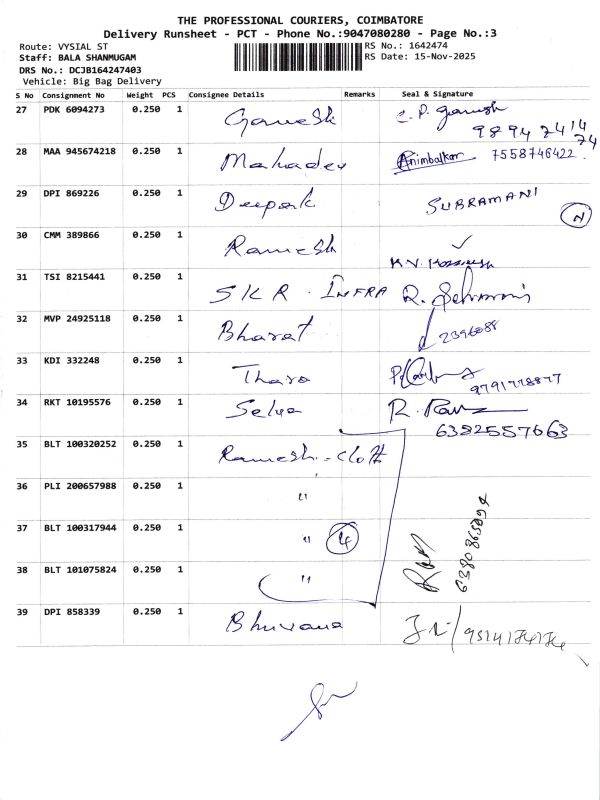 THE PROFESSIONAL COURIERS, COIMBATORE
Delivery Runsheet - PCT - Phone No.:9047080280 - Page No.:3
Route: VYSIAL ST
RS No.: 1642474
Staff: BALA SHANMUGAM
RS Date: 15-Nov-2025
DRS No.: DCJB164247403
Vehicle: Big Bag Delivery
S No Consignment No Weight PCS Consignee Details Remarks Seal & Signature
27 PDK 6094273 0.250 1 Ganesh C. P. Ganesh
98947 2414
74
28 MAA 945674218 0.250 1 Mahadev Animbalkar 7558746422
29 DPI 869226 0.250 1 Deepak SUBRAMANI
N
30 CMM 389866 0.250 1 Ramesh
K.V.
31 TSI 8215441 0.250 1 SKR . INFRA R.
32 MVP 24925118 0.250 1 Bharat
2396088
33 KDI 332248 0.250 1 Thara
9791778877
34 RKT 10195576 0.250 1 Selva R.
6382557663
35 BLT 100320252 0.250 1 Ramesh - cloth
36 PLI 200657988 0.250 1 "
37 BLT 100317944 0.250 1 " 4
38 BLT 101075824 0.250 1 "
39 DPI 858339 0.250 1 Bhuvana